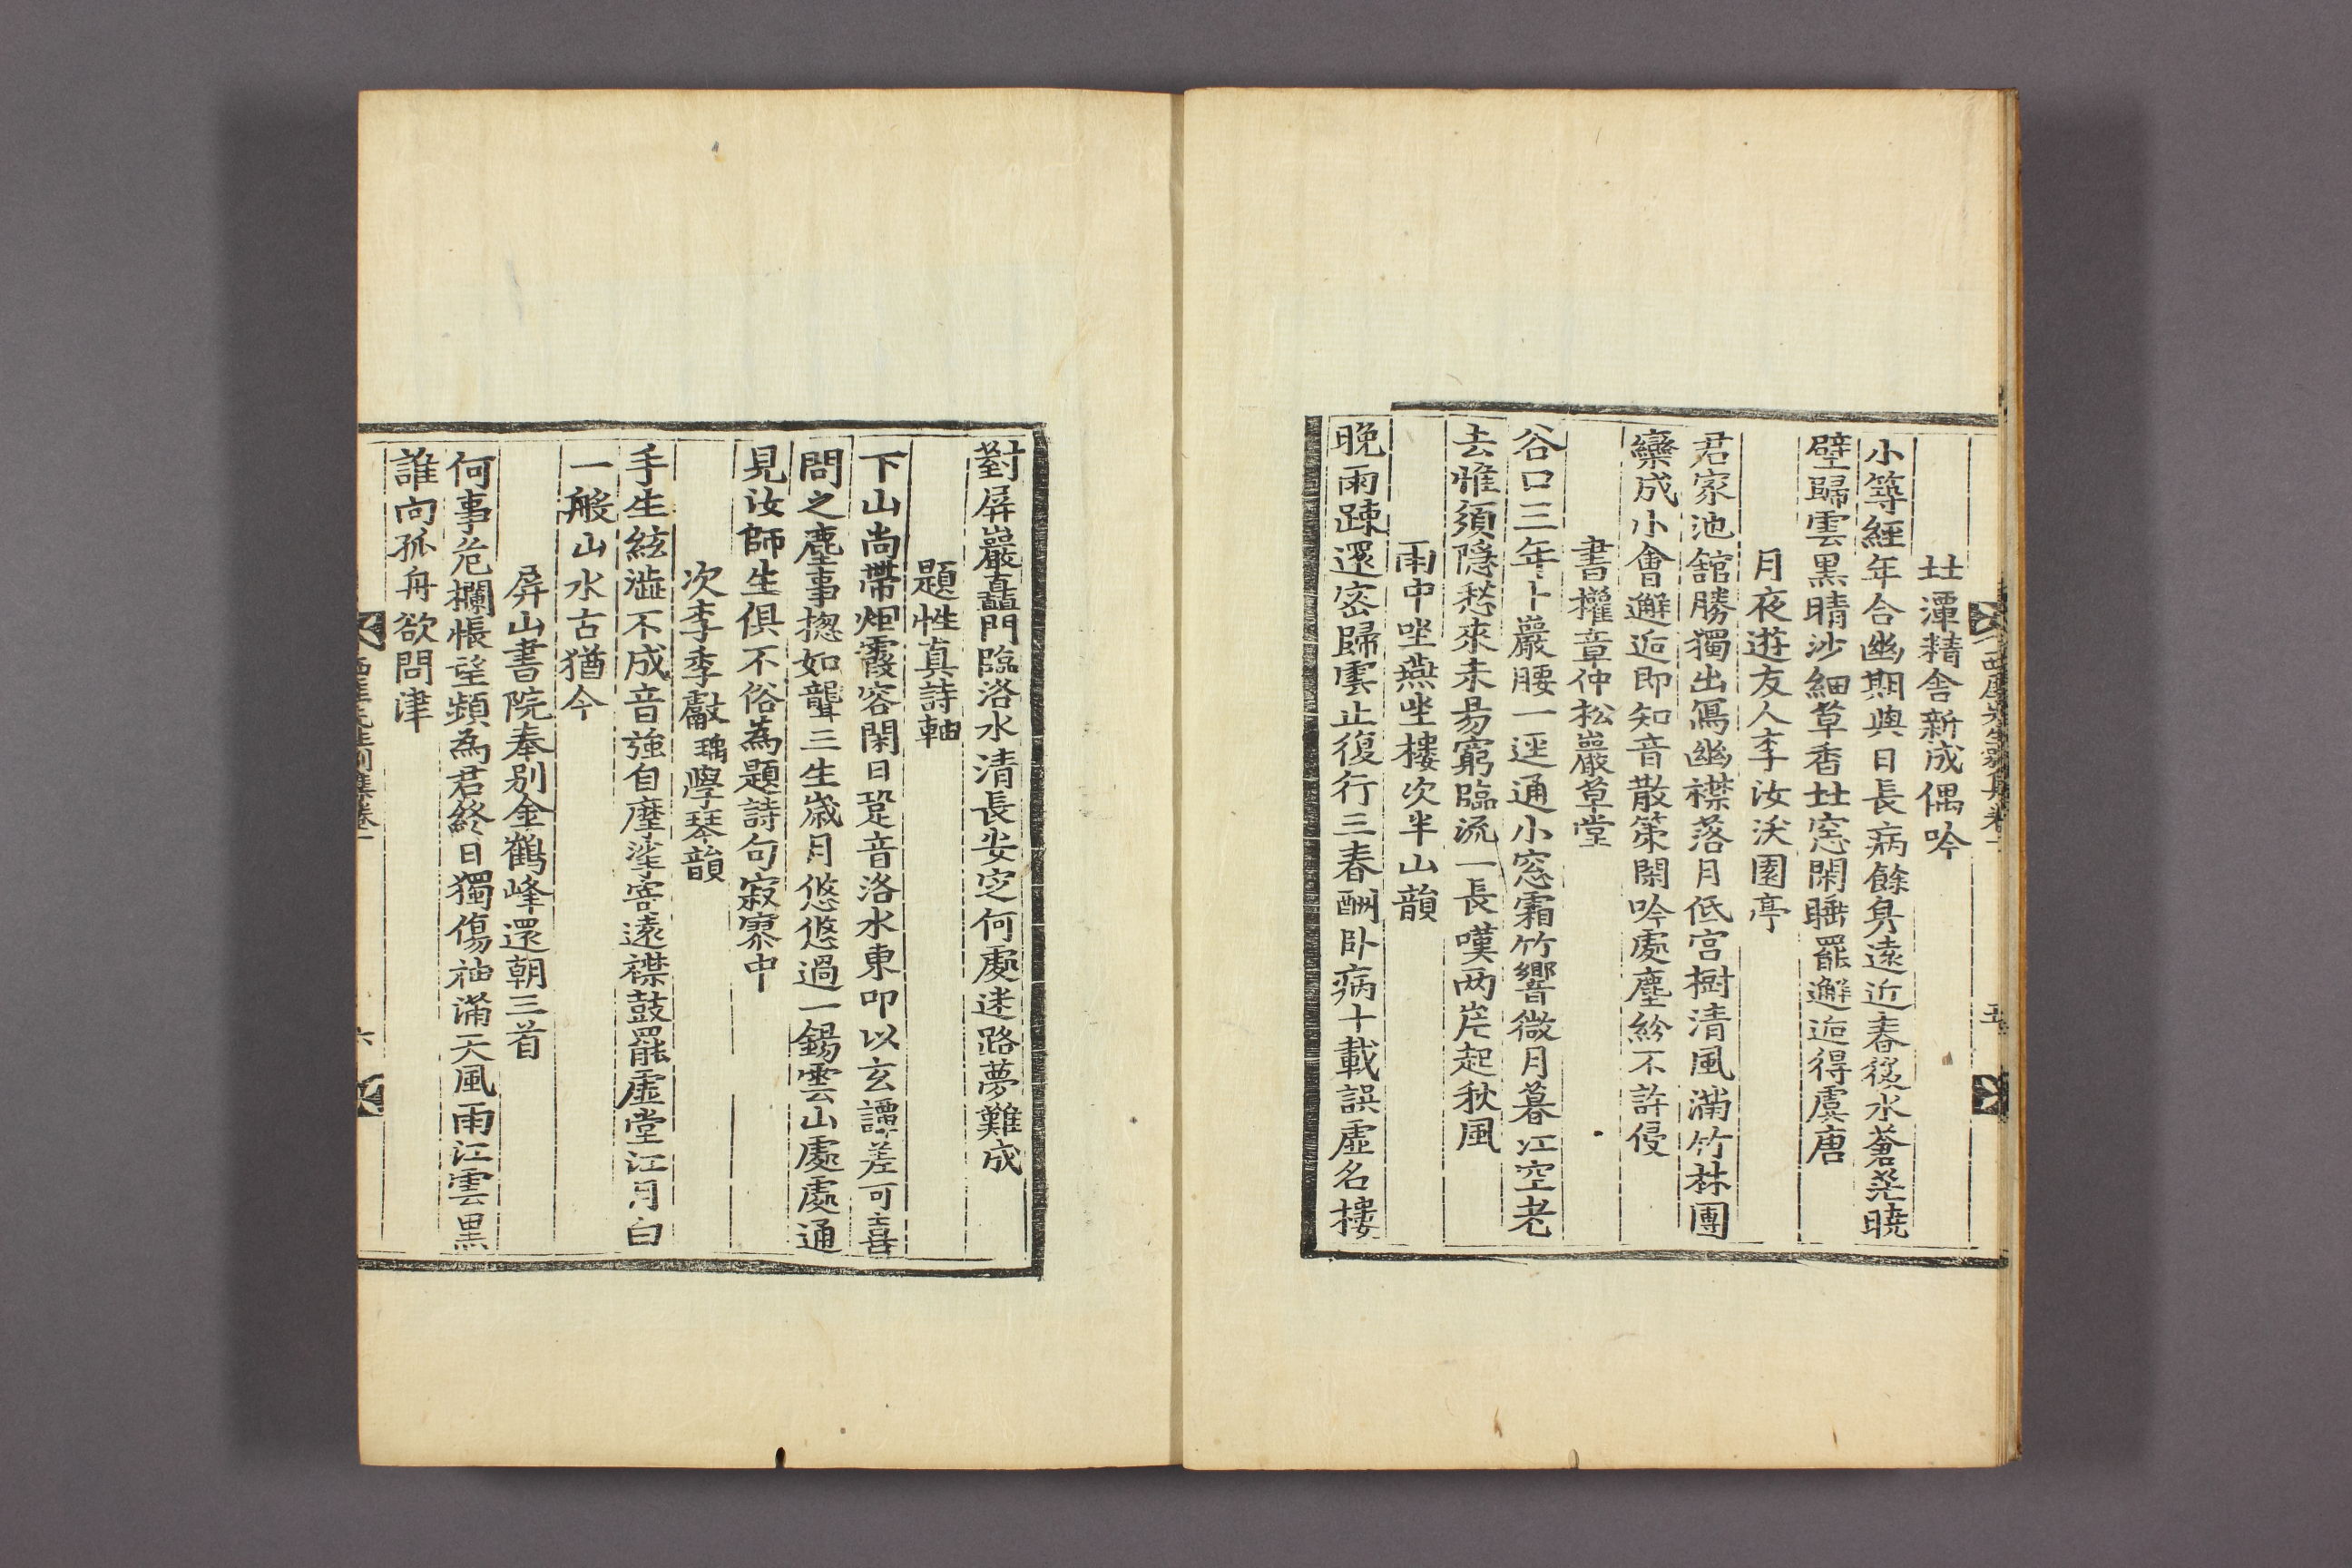 西厓先生別集卷一
五
北潭精舍新成偶吟
小築經年合幽期與日長病餘身遠近春後水蒼茫曉
壁歸雲黑晴沙細草香北窓閑睡罷邂逅得虞唐
月夜遊友人李汝沃園亭
君家池舘勝獨出寫幽襟落月低宮樹清風滿竹林團
欒成小會邂逅即知音散策閑吟處塵紛不許侵
書權章仲松巖草堂
谷口三年卜巖腰一逕通小窓霜竹響微月暮江空老
去惟須隱愁來未易窮臨流一長嘆两崖起秋風
雨中坐燕坐樓次半山韻
晚雨踈還密歸雲止復行三春酬卧病十載誤虛名樓
對屏巖矗門臨洛水清長安定何處迷路夢難成
題性真詩軸
下山尚帶烟霞容閑日跫音洛水東叩以玄譚差可喜
問之塵事揔如聾三生歲月悠悠過一錫雲山處處通
見汝師生俱不俗為題詩句寂寥中
次李季獻珥學琴韻
手生絃澁不成音強自摩挲寄遠襟鼓罷虛堂江月白
一般山水古猶今
屏山書院奉別金鶴峰還朝三首
何事危欄悵望頻為君終日獨傷神滿天風雨江雲黑
誰向孤舟欲問津
西厓先生別集卷一
六